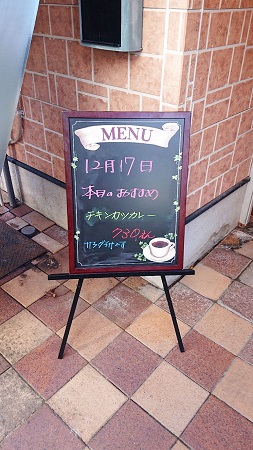 MENU
12月17日
本日のおすすめ
チキンカツカレー
730えん
サラダ付です